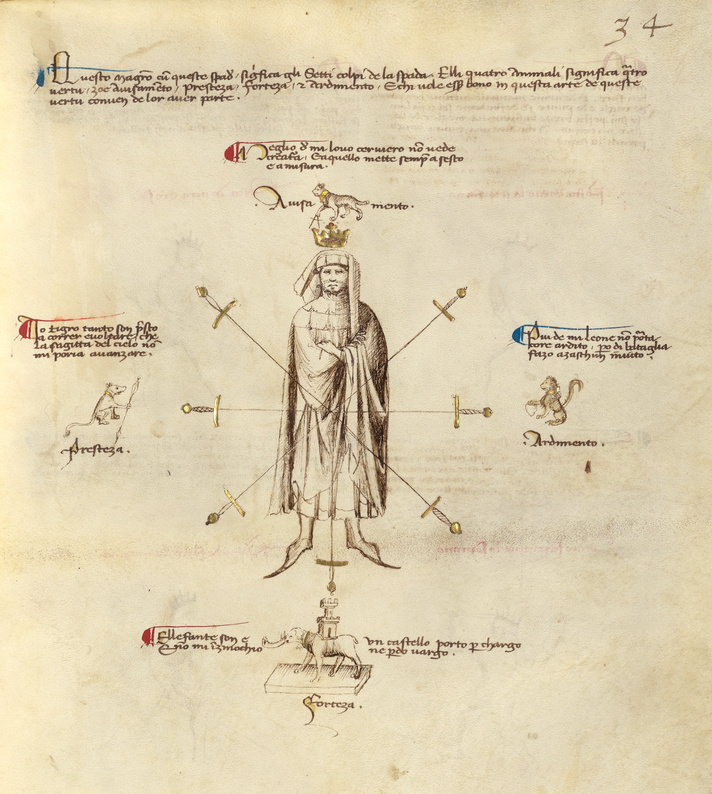 34
Questo Magro cū queste spade significa gli Setti colpi de la spada. Elli quatro animali significa q̄tro
vertu, zoe auisamēto, presteza, forteza, 2 ardimento. E chi uole ess̄ bono in questa arte de queste
vertu conuen de lor auer parte.
Meglio d̄ mi louo ceruiero nō uede
creatura, Eaquello mette semp̄ a sesto
e a misura.
Auisa mento.
Io tigro tanto son p̄sto
a correr e uoltare, che
la sagitta del cielo nō
mi poria auanzare.
Presteza.
Piu de mi leone nō porta
core ardito, p̄o di bataglia
fazo a zaschun inuito.
Ardimento.
Ellefante son e
un castello porto p̄ chargo
E nō mi īzenochio
ne p̄do uargo.
Forteza.